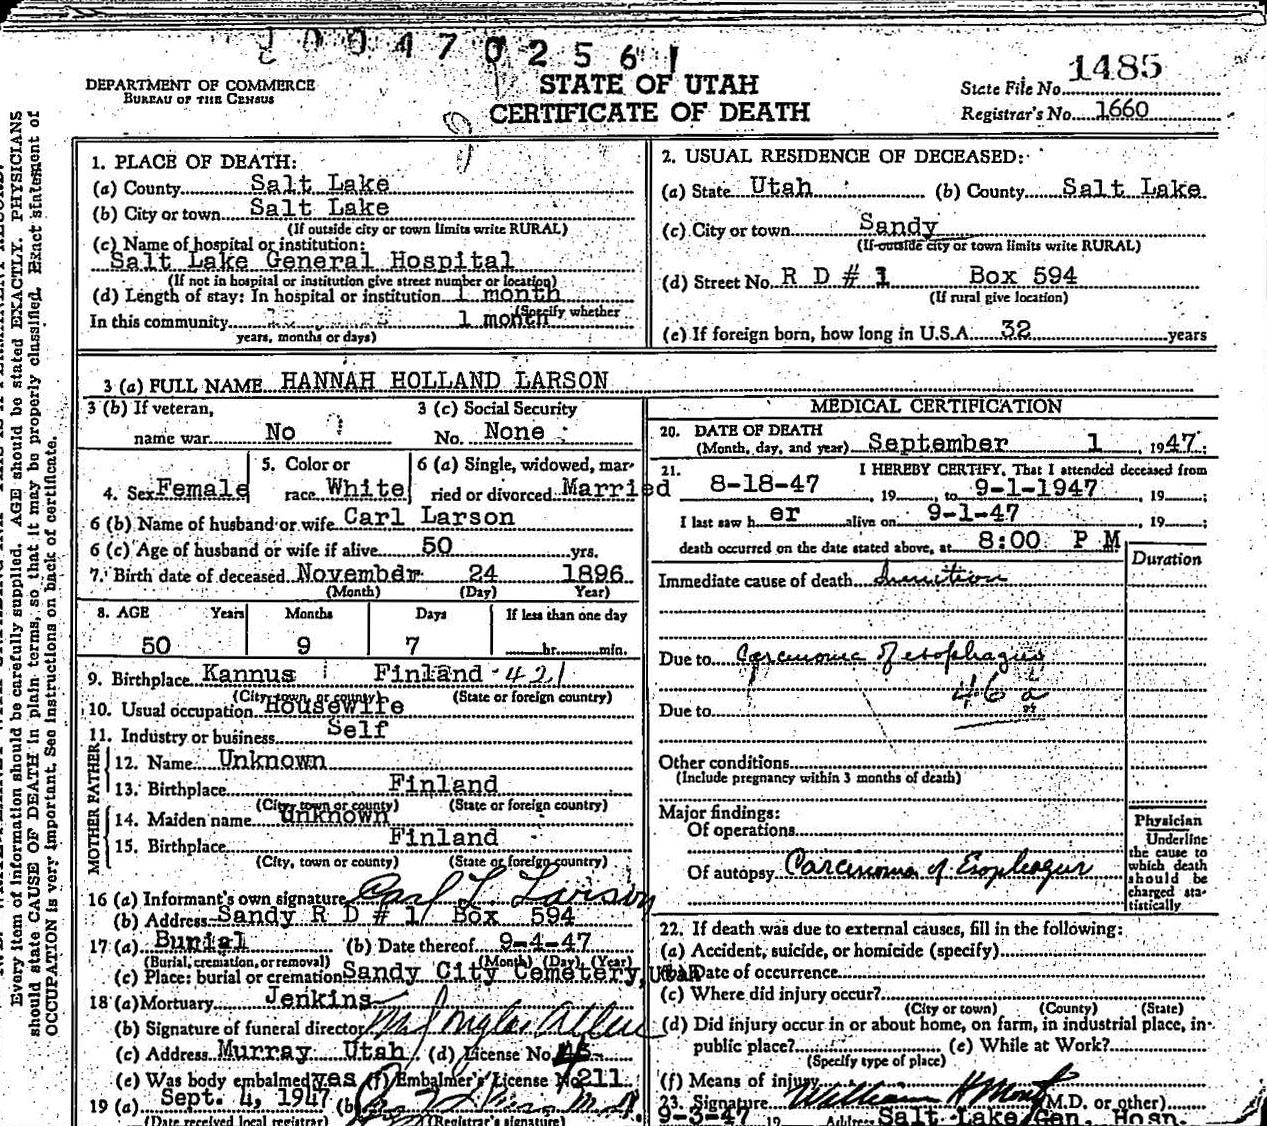 2 0 0 4 7 0 2 5 6 1
DEPARTMENT OF COMMERCE
BUREAU OF THE CENSUS
STATE OF UTAH
CERTIFICATE OF DEATH
State File No. 1485
Registrar's No. 1660
Every item of information should be carefully supplied. AGE should be stated EXACTLY. PHYSICIANS
should state CAUSE OF DEATH in plain terms, so that it may be properly classified. Exact statement of
OCCUPATION is very important. See instructions on back of certificate.
1. PLACE OF DEATH:
(a) County Salt Lake
(b) City or town Salt Lake
(If outside city or town limits write RURAL)
(c) Name of hospital or institution:
Salt Lake General Hospital
(If not in hospital or institution give street number or location)
(d) Length of stay: In hospital or institution 1 month
(Specify whether
In this community 1 month
years, months or days)
2. USUAL RESIDENCE OF DECEASED:
(a) State Utah (b) County Salt Lake
(c) City or town Sandy
(If outside city or town limits write RURAL)
(d) Street No. R D # 1 Box 594
(If rural give location)
(e) If foreign born, how long in U.S.A. 32 years
3 (a) FULL NAME HANNAH HOLLAND LARSON
3 (b) If veteran,
name war No
3 (c) Social Security
No. None
4. Sex Female
5. Color or
race White
6 (a) Single, widowed, mar-
ried or divorced Married
6 (b) Name of husband or wife Carl Larson
6 (c) Age of husband or wife if alive 50 yrs.
7. Birth date of deceased November 24 1896
(Month) (Day) Year)
8. AGE Years Months Days If less than one day
50 9 7 hr. min.
9. Birthplace Kannus Finland 421
(City, town, or county) (State or foreign country)
10. Usual occupation Housewife
11. Industry or business Self
FATHER
12. Name Unknown
13. Birthplace Finland
(City, town or county) (State or foreign country)
MOTHER
14. Maiden name Unknown
15. Birthplace Finland
(City, town or county) (State or foreign country)
16 (a) Informant's own signature Carl L. Larson
(b) Address Sandy R D # 1 Box 594
17 (a) Burial (b) Date thereof 9-4-47
(Burial, cremation, or removal) (Month) (Day) (Year)
(c) Place: burial or cremation Sandy City Cemetery, Utah
18 (a) Mortuary Jenkins
(b) Signature of funeral director
(c) Address Murray Utah (d) License No.
(e) Was body embalmed yes (f) Embalmer's License No. 211
19 (a) Sept. 4, 1947 (b)
(Date received local registrar) (Registrar's signature)
MEDICAL CERTIFICATION
20. DATE OF DEATH
(Month, day, and year) September 1 , 1947;
21. I HEREBY CERTIFY, That I attended deceased from
8-18-47 , 19 , to 9-1-1947 , 19 ;
I last saw h er alive on 9-1-47 , 19 ;
death occurred on the date stated above, at 8:00 P M
Duration
Immediate cause of death Inanition
Due to Carcinoma of esophagus
46 a
Due to
Other conditions
(Include pregnancy within 3 months of death)
Major findings:
Of operations
Of autopsy Carcinoma of Esophagus
Physician
Underline
the cause to
which death
should be
charged sta-
tistically
22. If death was due to external causes, fill in the following:
(a) Accident, suicide, or homicide (specify)
Date of occurrence
(c) Where did injury occur?
(City or town) (County) (State)
(d) Did injury occur in or about home, on farm, in industrial place, in
public place? (e) While at Work?
(Specify type of place)
(f) Means of injury
23. Signature William H (M.D. or other)
9-3-47 19 Address Salt Lake Gen. Hosp.